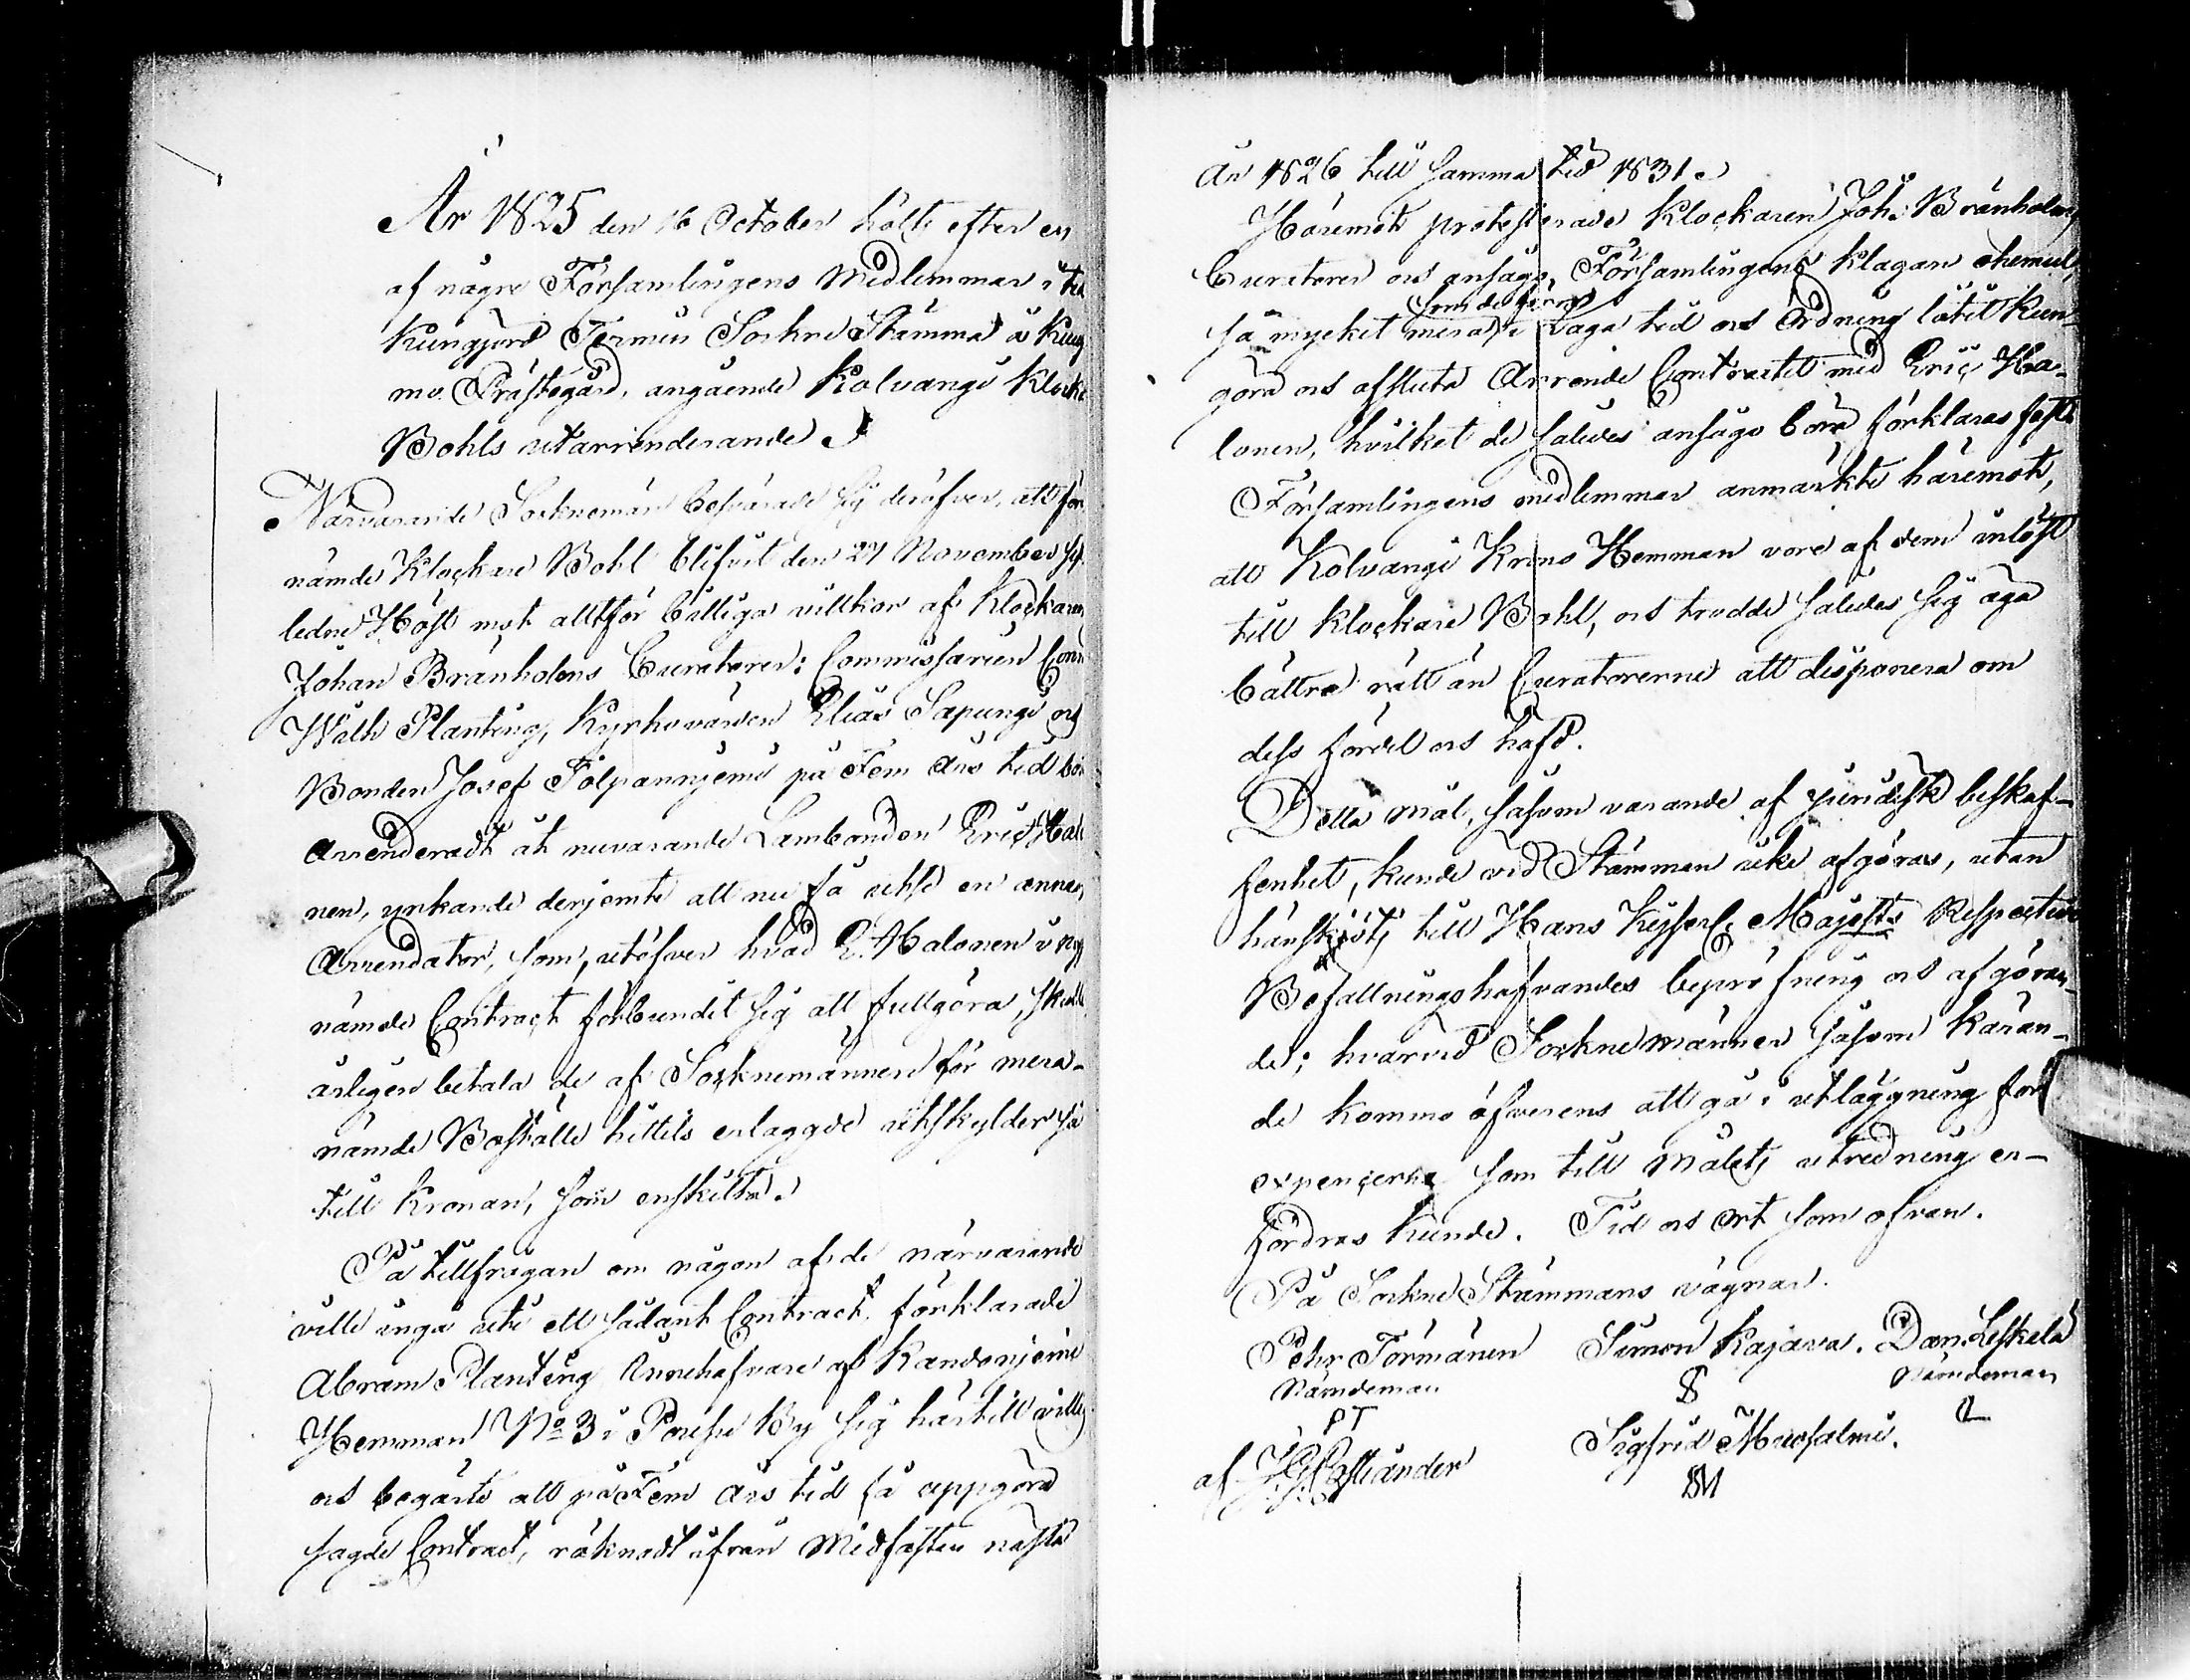 År 1825 den 16 October hölts efter en
af någre Församlingens medlemmar i tid
kungjord Termin Sockne Stämma i Kuusa
mo Prästegård, angående Kolvangi Klocka
Bohls utarrenderande.
Närvarande Socknemän besvärade sig deröfver, att för
nämde Klockare Bohl blifvit den 27 November sist
ledne Höst mot alltför billiga villkor af Klockaren
Johan Brånholms Curatorer: Commissarien
Planting, Kyrkovärden Elias Sapungi och
Bonden Josef Tolpanniemi på Fem års tid
Arrenderadt åt nuvarande Lambonden Eric Halo
nen, yrkande derjemte att nu få utse en annan
Arrendator, som, utöfver hvad E. Halonen i
nämde Contract förbundit sig att fullgöra, skulle
årligen betala de af Socknemännen för mera-
nämde Boställe hittils erlaggde utskylder så
till Kronan, som enskilta.
På tillfrågan om någon af de närvarande
ville ingå uti ett sådant Contract, förklarade
Abram Planting Innehafvare af Kandoniemi
Hemman No 3 i Pousu By sig härtill villig
och begärte att på Fem års tid få uppgöra
sagde Contract, räknadt ifrån Midfasten nästa
år 1826 till samma tid 1831.
Häremot protesterade Klockaren Joh: Brånholms
Curatorer och ansågo Församlingens klagan
så mycket mera, som de i Laga tid och Ordning låtit kun-
göra och afsluta Arrende Contractet med Eric Ha-
lonen, hvilket de således ansågo böra förklaras fast.
Församlingens medlemmar anmärkte häremot,
att Kolvangi Krono Hemman vore af dem inlöst
till Klockare Bohl, och trodde således sig äga
bättre rätt än Curatorerne att disponera om
dess fördel och häfd.
Detta mål, såsom varande af juridisk beskaf-
fenhet, kunde vid Stämman icke afgöras, utan
hänsköts till Hans Kejserl: Majts Respective
Befallningshafvandes bepröfning och afgöran-
de; hvarvid Socknemännen såsom käran-
de kommo öfverens att gå i utläggning för
expencerne som till målets utredning er-
fordras kunde. Tid och Ort som ofvan.
På Sockne Stämmans vägnar.
Pehr Törmänen Simon Kajava. Dan: Leskelä
Nämdeman S Nämdeman
PT L
af Sigfrid Muosalmi.
SM